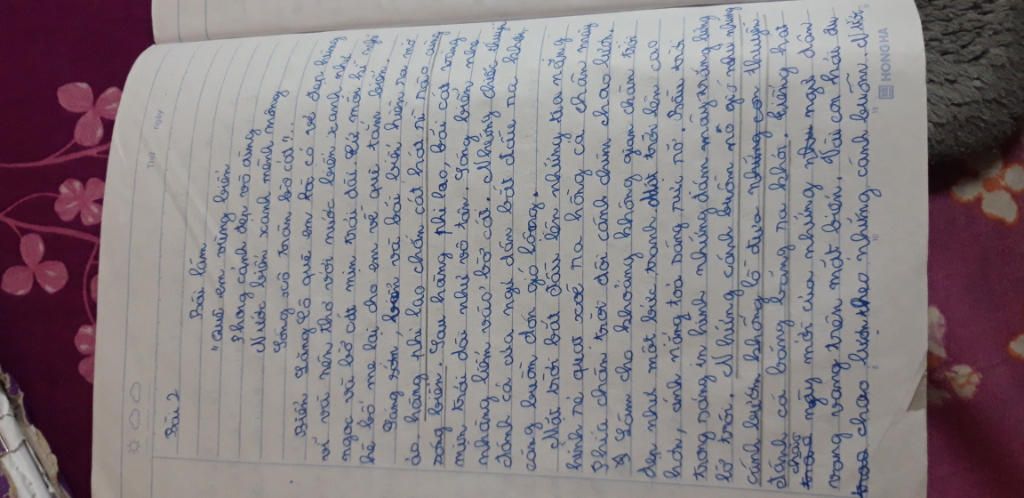 Bài 2
Bài làm
"Quê em vùng biển
Phong cảnh đẹp vô cùng
Nước biển xanh mênh mông
Sóng xô tràn bờ cát"...
Biển Lăng Cô quê em đã có vẻ đẹp hùng
vĩ và nên thơ với nước biển xanh như
ngọc và bờ cát mịn trải dài. Cứ mỗi hè nghỉ
hè bố mẹ lại cho em về quê tắm biển.
Sáng sớm, và bãi biển hiện ra mờ
ảo hàng phi lao chắn cát hát rì rào cùng
sóng biển. Sau hàng phi lao, bãi cát vàng
mịn trải dài như vô tận. Sóng biển nhẹ
nhàng liếm vào bờ cát. Những chiếc thuyền
đánh cá của ngư dân bắt đầu ra khơi,
căng buồm đón gió
Mặt trời bắt đầu lên những tia nắng
hình rẻ quạt xoè ra hồng cả chân mây
Phía chân trời đôi cánh chim chao lượn.
Làm cho khoảng không gian chân trời
đẹp như một bức tranh. Mặt trời lên cao
hơn, ánh nắng toả sáng rực rỡ. Bầu trời
trong sáng in hình những đám mây trắng bồng
lờ trôi. Những cánh buồm no gió như những
cánh bướm khổng lồ đưa những con thuyền
đánh cá băng băng ra khơi. tiếng hát
chào ngày mới của những ngư dân
vang vang trên mặt biển. Vài con hải âu
chao lượn theo những cánh buồm. Nước
THỨ
NGÀY
HONG HA